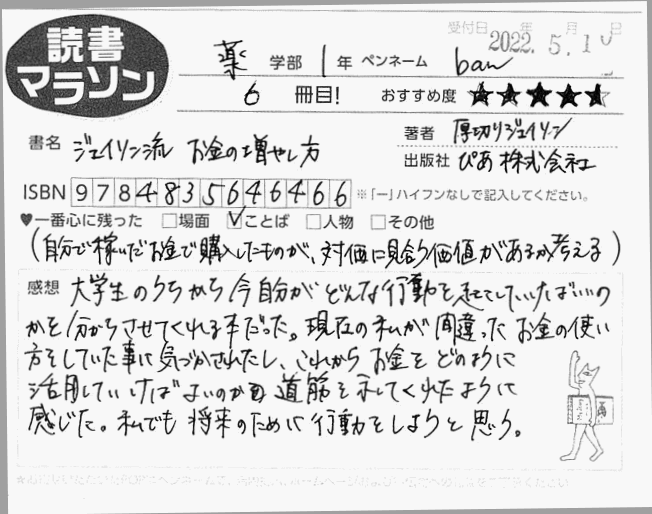 読書
マラソン
受付日 年 月 日
2022. 5. 10
薬 学部 1 年 ペンネーム ban
6 冊目! おすすめ度 ★★★★★
書名 ジェイソン流 お金の増やし方
著者 厚切りジェイソン
出版社 ぴあ株式会社
ISBN 9784835646466 ※「ー」ハイフンなしで記入してください。
♥一番心に残った □場面 ☑ことば □人物 □その他
(自分で稼いだお金で購入したものが、対価に見合う価値があるか考える)
感想 大学生のうちから今自分がどんな行動を起こしていけばいいの
かを分からさせてくれる本だった。現在の私が間違ったお金の使い
方をしていた事に気づかされたし、これからお金をどのように
活用していけばよいのかの道筋を示してくれたように
感じた。私でも将来のために行動をしようと思う。